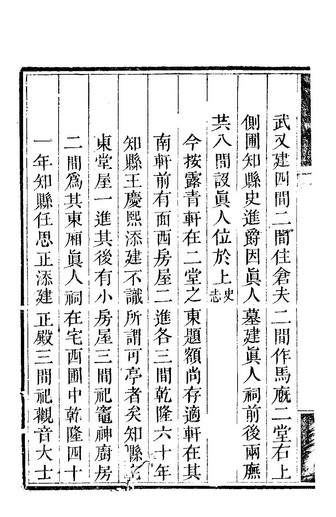 武又建四間二間住倉夫二間作馬廄二堂右上
側圃知縣史進爵因眞人墓建眞人祠前後兩廡
共八間設眞人位於上史志
今按露青軒在二堂之東題額尚存適軒在其
南軒前有面西房屋二進各三間乾隆六十年
知縣王慶熙添建不識所謂可亭者矣知縣
東堂屋一進其後有小房屋三間祀竈神廚房
二間爲其東廂眞人祠在宅西圃中乾隆四十
一年知縣任思正添建正殿三間祀觀音大士